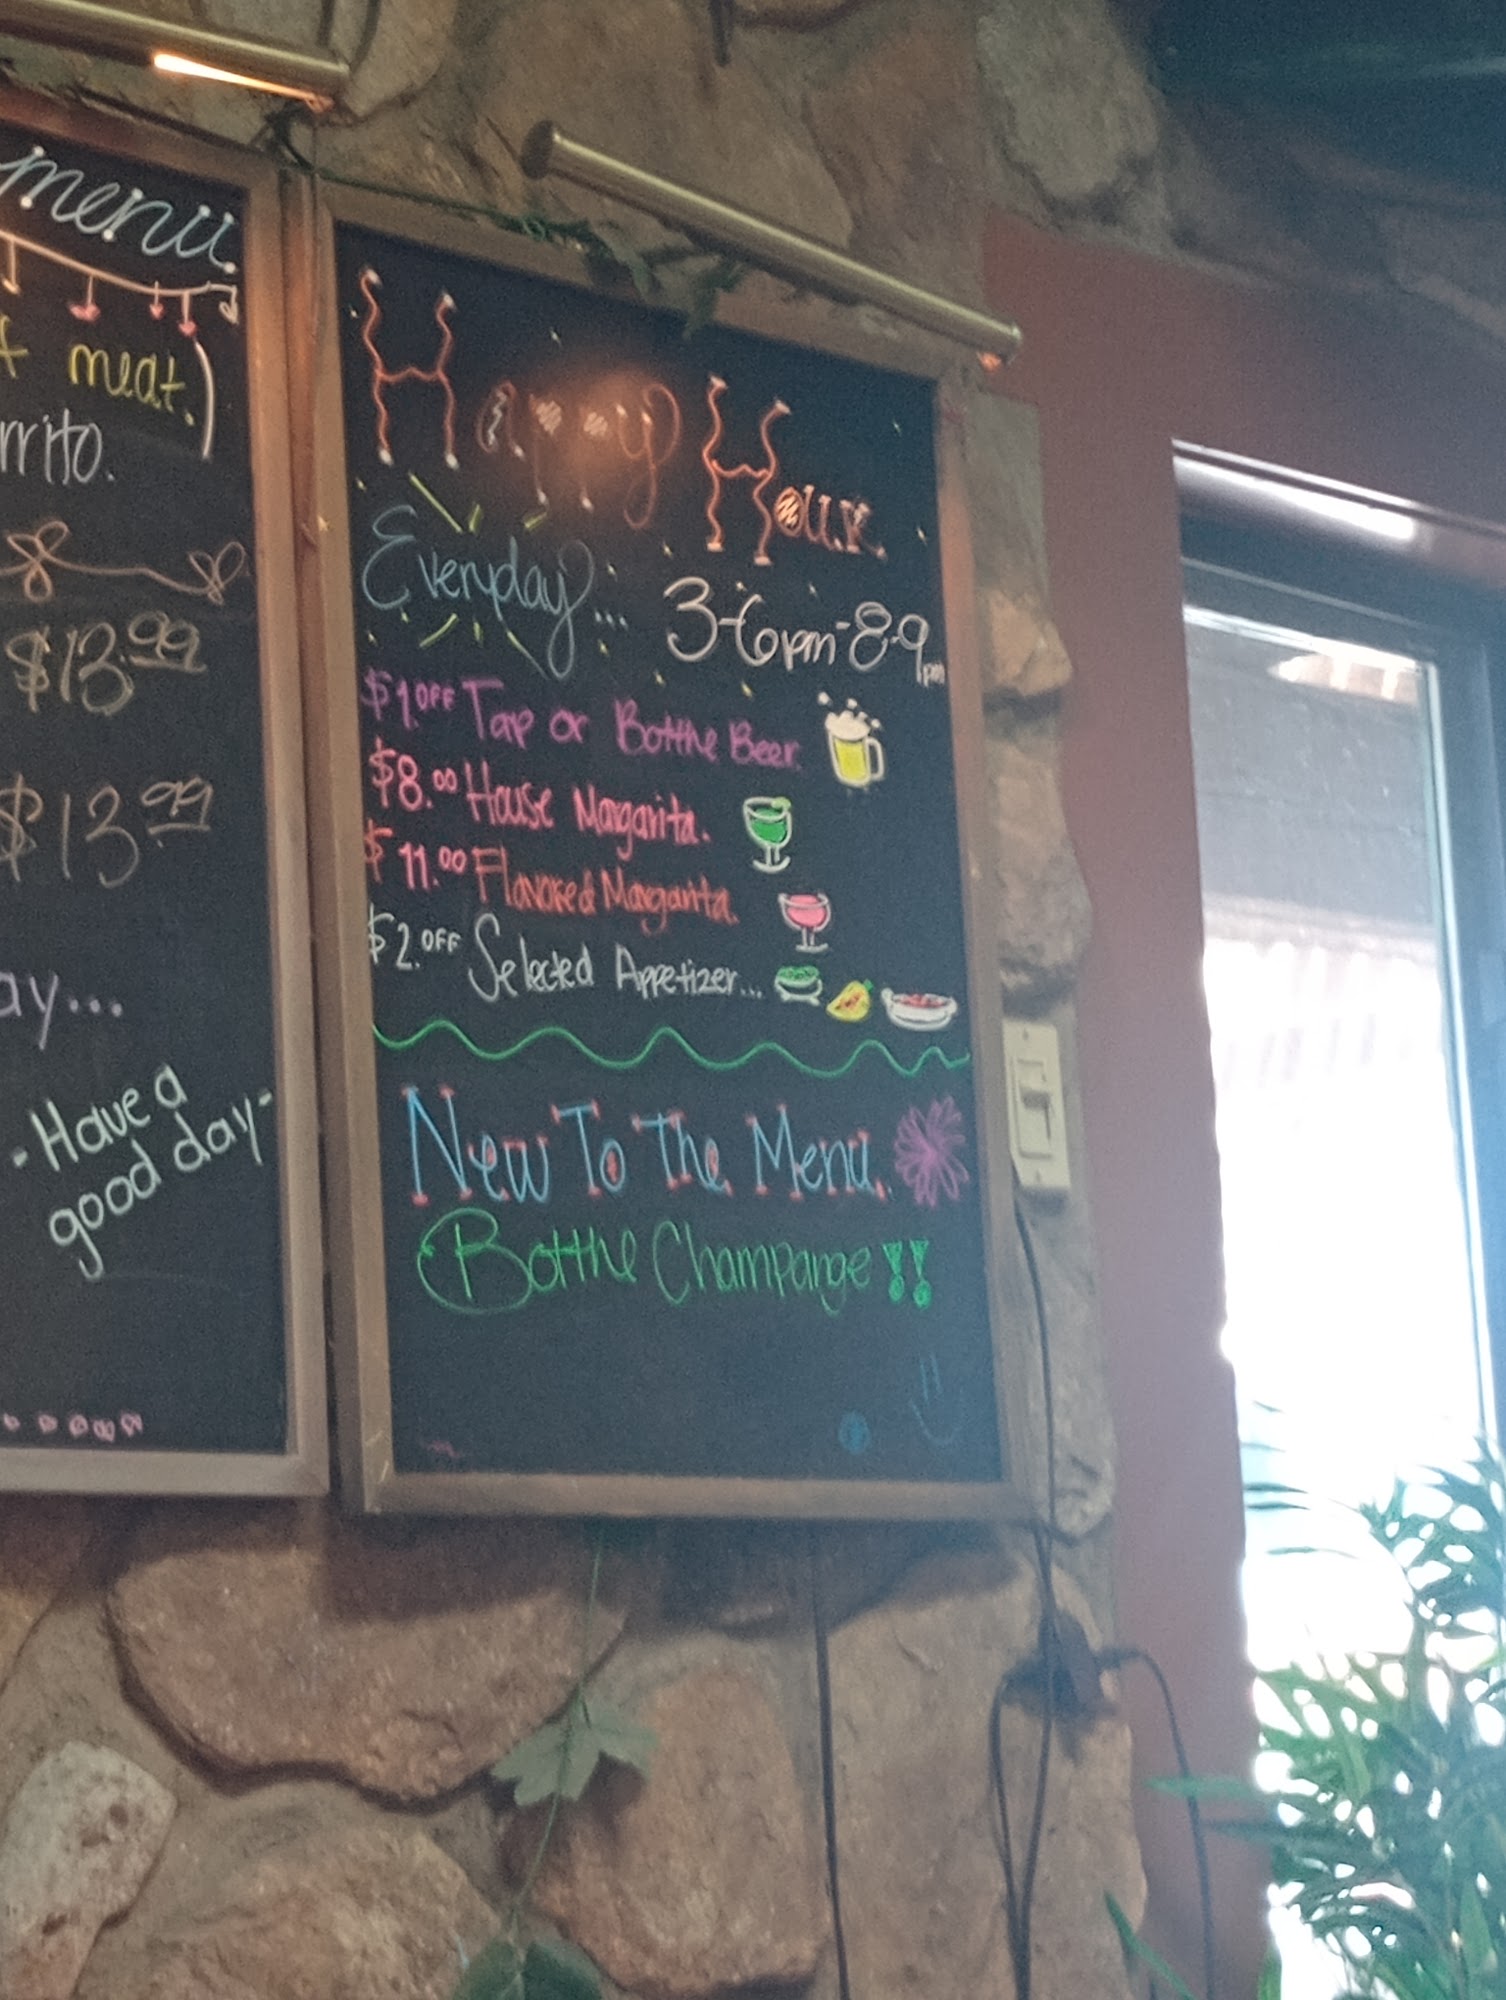 menu.
meat.)
rrito.
$13.99
$13.99
ay...
- Have a
good day -
Happy Hour.
Everyday... 3-6pm-8-9pm
$1.OFF Tap or Botthe Beer.
$8.00 House Margarita.
$11.00 Flavored Margarita.
$2.OFF Selected Appetizer...
New To The Menu.
Botthe Champange !!